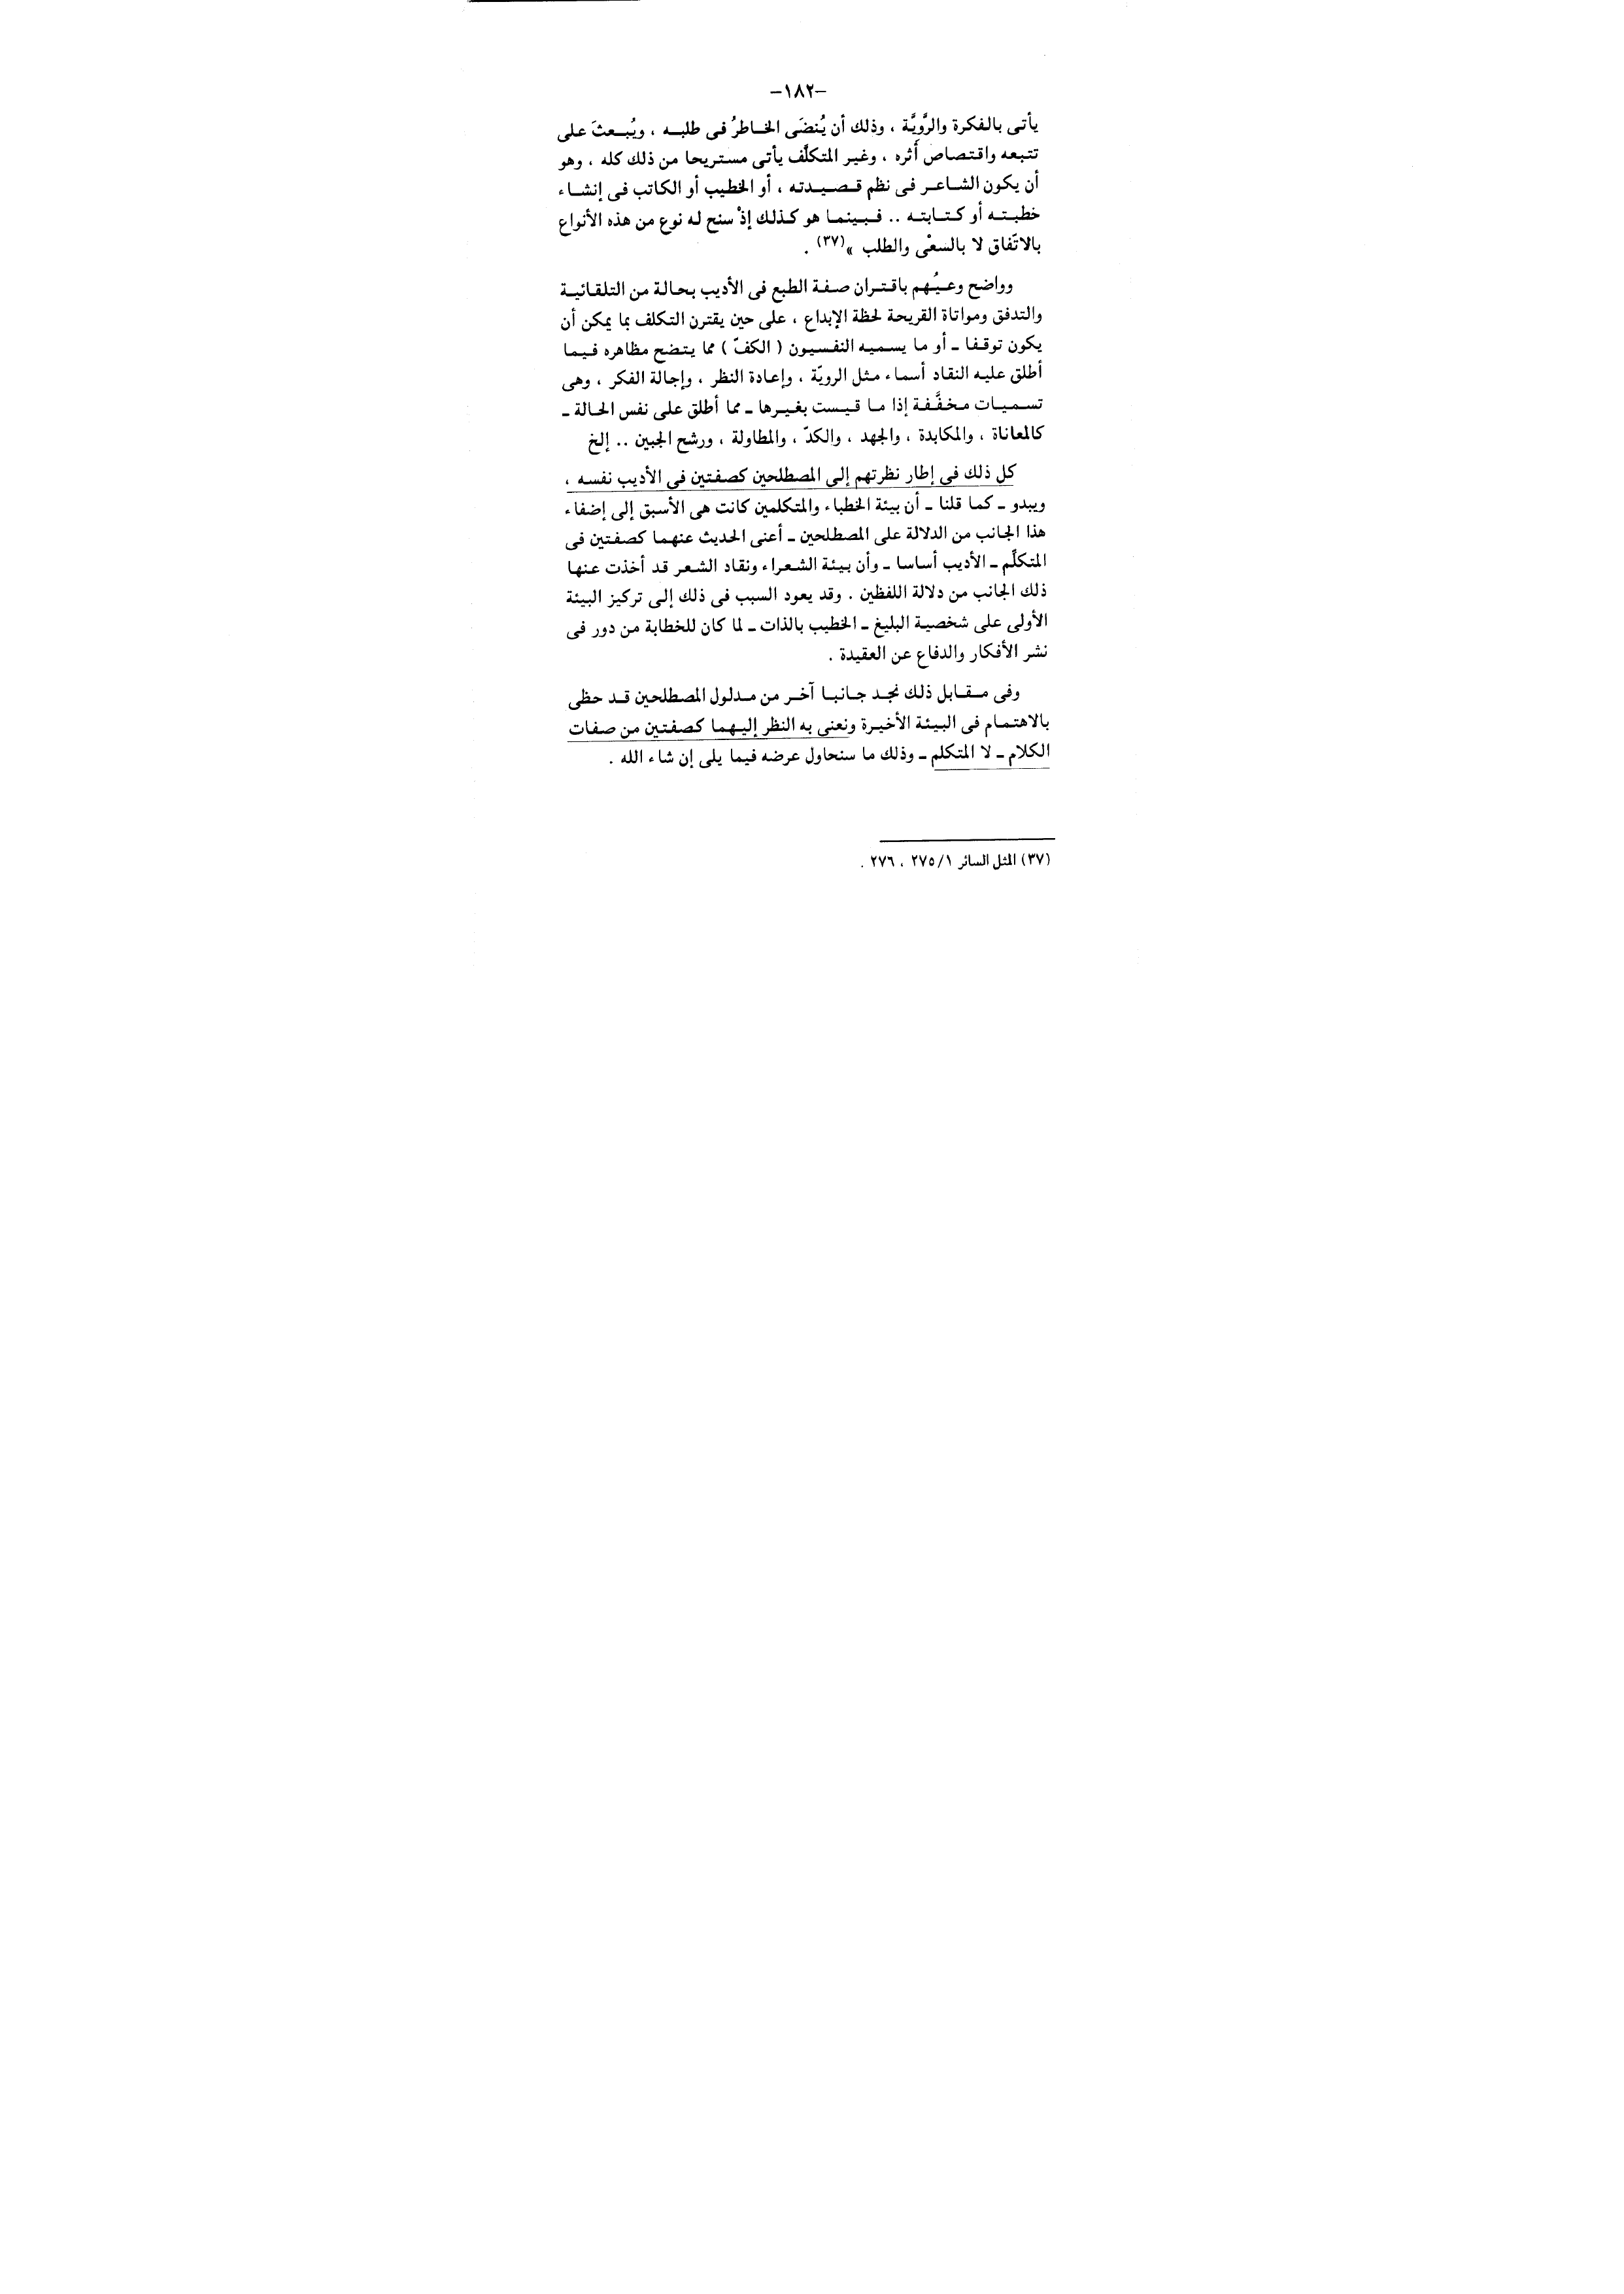 -١٨٢-
يأتى بالفكرة والرَّويَّة ، وذلك أن يُنضَى الخاطرُ فى طلبه ، ويُبعثَ على
تتبعه واقتصاص أثره ، وغير المتكلَّف يأتى مستريحا من ذلك كله ، وهو
أن يكون الشاعر فى نظم قصيدته ، أو الخطيب أو الكاتب فى إنشاء
خطبته أو كتابته .. فبينما هو كذلك إذْ سنح له نوع من هذه الأنواع
بالاتّفاق لا بالسعْى والطلب »(٣٧) .
وواضح وعيُهم باقتران صفة الطبع فى الأديب بحالة من التلقائية
والتدفق ومواتاة القريحة لحظة الإبداع ، على حين يقترن التكلف بما يمكن أن
يكون توقفا ـ أو ما يسميه النفسيون ( الكفّ ) مما يتضح مظاهره فيما
أطلق عليه النقاد أسماء مثل الرويّة ، وإعادة النظر ، وإجالة الفكر ، وهى
تسميات مخفَّفة إذا ما قيست بغيرها ـ مما أطلق على نفس الحالة ـ
كالمعاناة ، والمكابدة ، والجهد ، والكدّ ، والمطاولة ، ورشح الجبين .. إلخ
كل ذلك فى إطار نظرتهم إلى المصطلحين كصفتين فى الأديب نفسه ،
ويبدو ـ كما قلنا ـ أن بيئة الخطباء والمتكلمين كانت هى الأسبق إلى إضفاء
هذا الجانب من الدلالة على المصطلحين ـ أعنى الحديث عنهما كصفتين فى
المتكلِّم ـ الأديب أساسا ـ وأن بيئة الشعراء ونقاد الشعر قد أخذت عنها
ذلك الجانب من دلالة اللفظين . وقد يعود السبب فى ذلك إلى تركيز البيئة
الأولى على شخصية البليغ ـ الخطيب بالذات ـ لما كان للخطابة من دور فى
نشر الأفكار والدفاع عن العقيدة .
وفى مقابل ذلك نجد جانبا آخر من مدلول المصطلحين قد حظى
بالاهتمام فى البيئة الأخيرة ونعنى به النظر إليهما كصفتين من صفات
الكلام ـ لا المتكلم ـ وذلك ما سنحاول عرضه فيما يلى إن شاء الله .
(٣٧) المثل السائر ٢٧٥/١ ، ٢٧٦ .